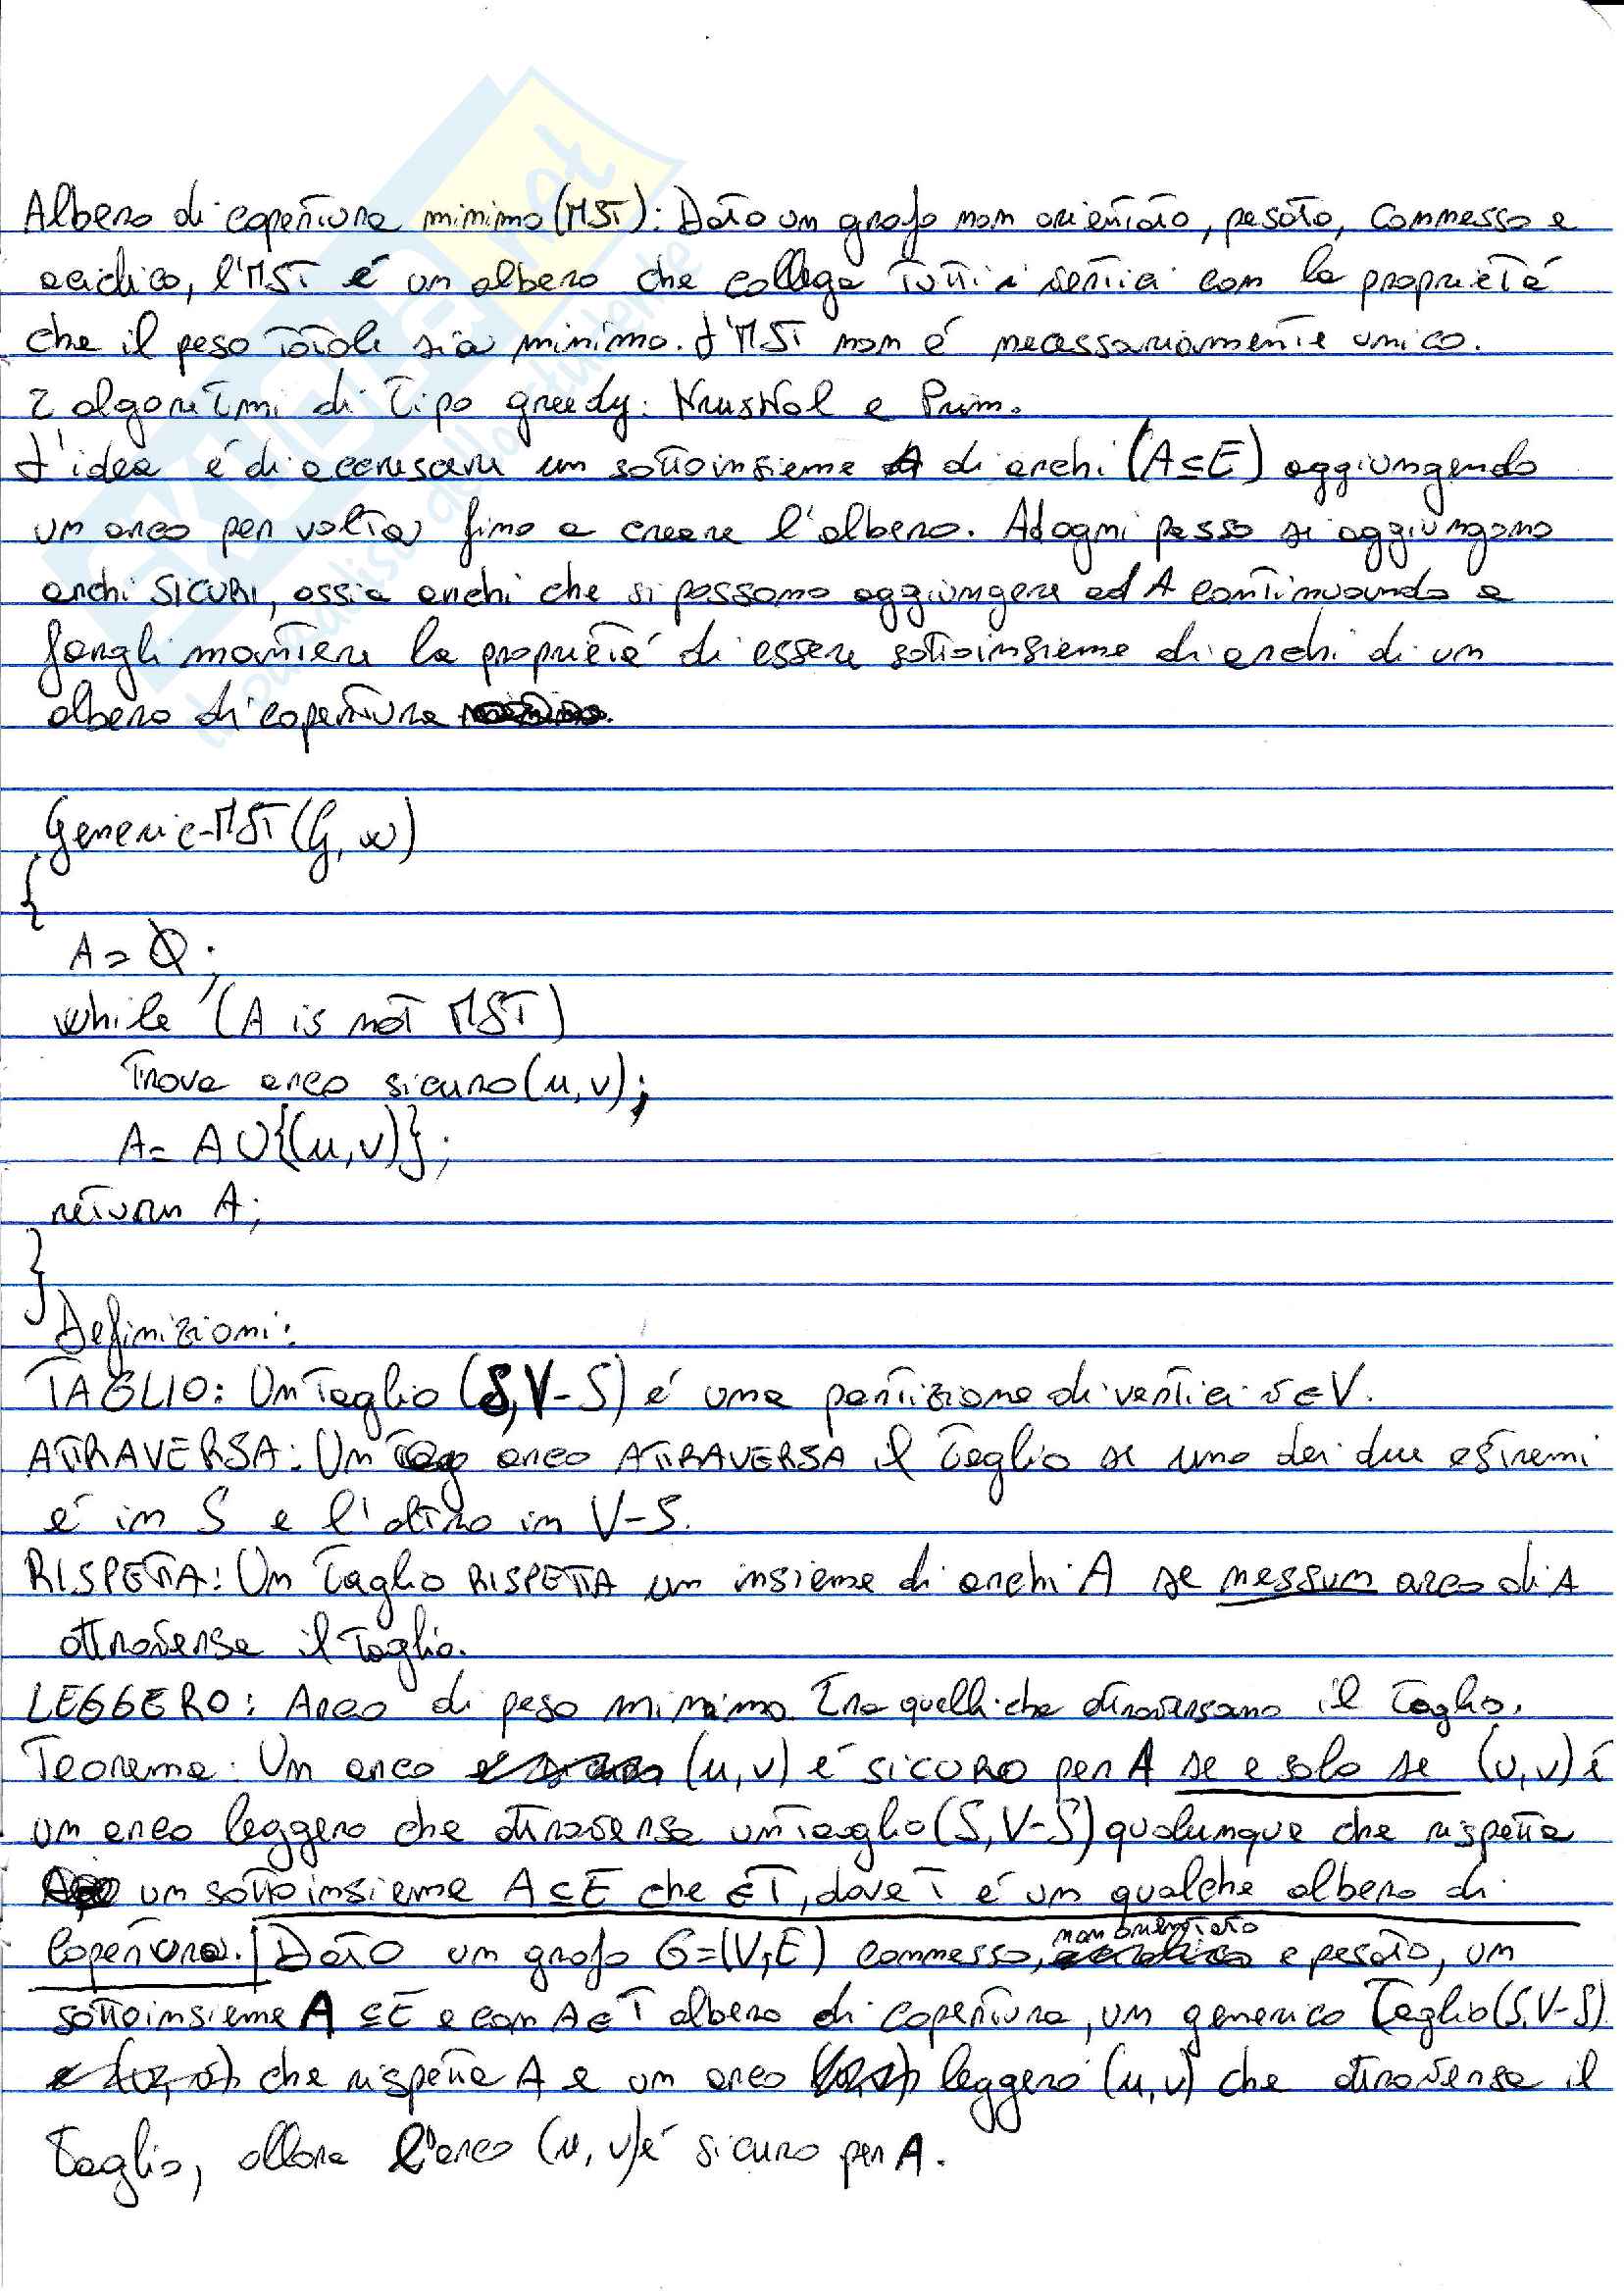 Albero di copertura minimo (MST): Dato un grafo non orientato, pesato, connesso e
aciclico, l'MST é un albero che collega tutti i vertici con la proprietá
che il peso totale sia minimo. L'MST non é necessariamente unico.
2 algoritmi di tipo greedy: Kruskal e Prim.
L'idea é di accrescere un sottoinsieme di archi (A⊆E) aggiungendo
un arco per volta fino a creare l'albero. Ad ogni passo si aggiungono
archi SICURI, ossia archi che si possono aggiungere ad A continuando a
fargli mantiere la proprietá di essere sottoinsieme di archi di un
albero di copertura
Generic-MST(G, w)
{
A = Ø;
while (A is not MST)
Trova arco sicuro (u,v);
A = A ∪ {(u,v)};
return A;
}
Definizioni:
TAGLIO: Un Taglio (S,V-S) é una partizione di vertici v∈V.
ATTRAVERSA: Un arco ATTRAVERSA il taglio se uno dei due estremi
é in S e l'altro in V-S.
RISPETTA: Un Taglio RISPETTA un insieme di archi A se nessun arco di A
attraversa il taglio.
LEGGERO: Arco di peso minimo tra quelli che attraversano il taglio.
Teorema: Un arco (u,v) é sicuro per A se e solo se (u,v) é
un arco leggero che attraversa un taglio (S,V-S) qualunque che rispetta
un sottoinsieme A⊆E che ∈T, dove T é un qualche albero di
copertura. Dato un grafo G=(V,E) connesso, non orientato e pesato, un
sottoinsieme A⊆E e con A∈T albero di copertura, un generico Taglio (S,V-S)
che rispetta A e un arco leggero (u,v) che attraversa il
Taglio, allora l'arco (u,v) é sicuro per A.